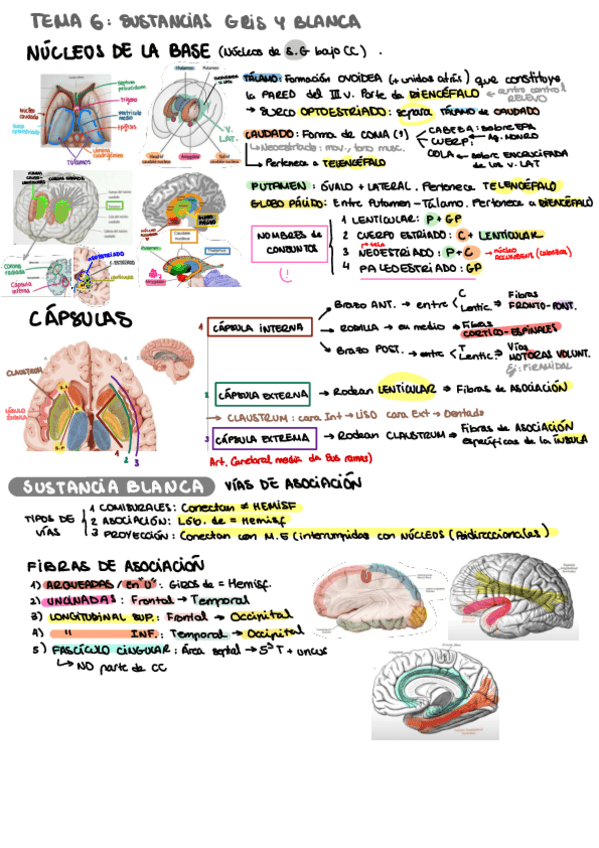 TEMA 6: SUSTANCIAS GRIS Y BLANCA
NÚCLEOS DE LA BASE (Núcleos de S.G bajo CC).
TÁLAMO: Formación OVOIDEA (+ unidos atrás) que constituye
la PARED del III V. Parte de DIENCÉFALO ← centro control RELEVO
→ SURCO OPTOESTRIADO: separa TÁLAMO de CAUDADO
CAUDADO: Forma de COMA (,)
CABEZA: sobre EPA
CUERPO:
COLA → sobre ENCRUCIJADA de los V. LAT
↳ Neoestriado: mov., tono musc.
↳ Pertenece a TELENCÉFALO
PUTAMEN: ÓVALO + LATERAL. Pertenece TELENCÉFALO
GLOBO PÁLIDO: Entre Putamen - Tálamo. Pertenece a DIENCÉFALO
NOMBRES de CONJUNTOS
1 LENTICULAR: P + GP
2 CUERPO ESTRIADO: C + LENTICULAR
3 NEOESTRIADO: P + C → núcleo ACCUMBENS (cabezas)
4 PALEOESTRIADO: GP
Septum pellucidum
Trígono
Ventrículo medio
Epífisis
Núcleo caudado
Surco optoestriado
Tálamos
Thalamus
Putamen
V. LAT.
Head of caudate nucleus
Amygdala
Tail of caudate nucleus
Caudate nucleus
Putamen
Corona radiada
Cápsula interna
CÁPSULAS
CLAUSTRUM
LÓBULO ÍNSULA
1 2 3
1 CÁPSULA INTERNA
→ BRAZO ANT. → entre C Lentic. → Fibras FRONTO-PONT.
→ RODILLA → en medio → Fibras CORTICO-ESPINALES
→ BRAZO POST. → entre T Lentic. → Vías MOTORAS VOLUNT.
Ej: PIRAMIDAL
2 CÁPSULA EXTERNA → Rodean LENTICULAR → Fibras de ASOCIACIÓN
→ CLAUSTRUM: cara Int → LISO cara Ext → Dentado
3 CÁPSULA EXTREMA → Rodean CLAUSTRUM → Fibras de ASOCIACIÓN específicas de la ÍNSULA
Art. Cerebral media da sus ramas)
SUSTANCIA BLANCA VÍAS DE ASOCIACIÓN
TIPOS DE VÍAS
1 COMISURALES: Conectan ≠ HEMISF
2 ASOCIACIÓN: Lób. de = Hemisf
3 PROYECCIÓN: Conectan con M.E (interrumpidas con NÚCLEOS (Bidireccionales)
FIBRAS DE ASOCIACIÓN
1) ARQUEADAS / en "U": GIROS de = Hemisf.
2) UNCINADAS: Frontal → Temporal
3) LONGITUDINAL SUP.: Frontal → Occipital
4) " INF.: Temporal → Occipital
5) FASCÍCULO CINGULAR: Área septal → 5ª T + uncus
↳ NO parte de CC